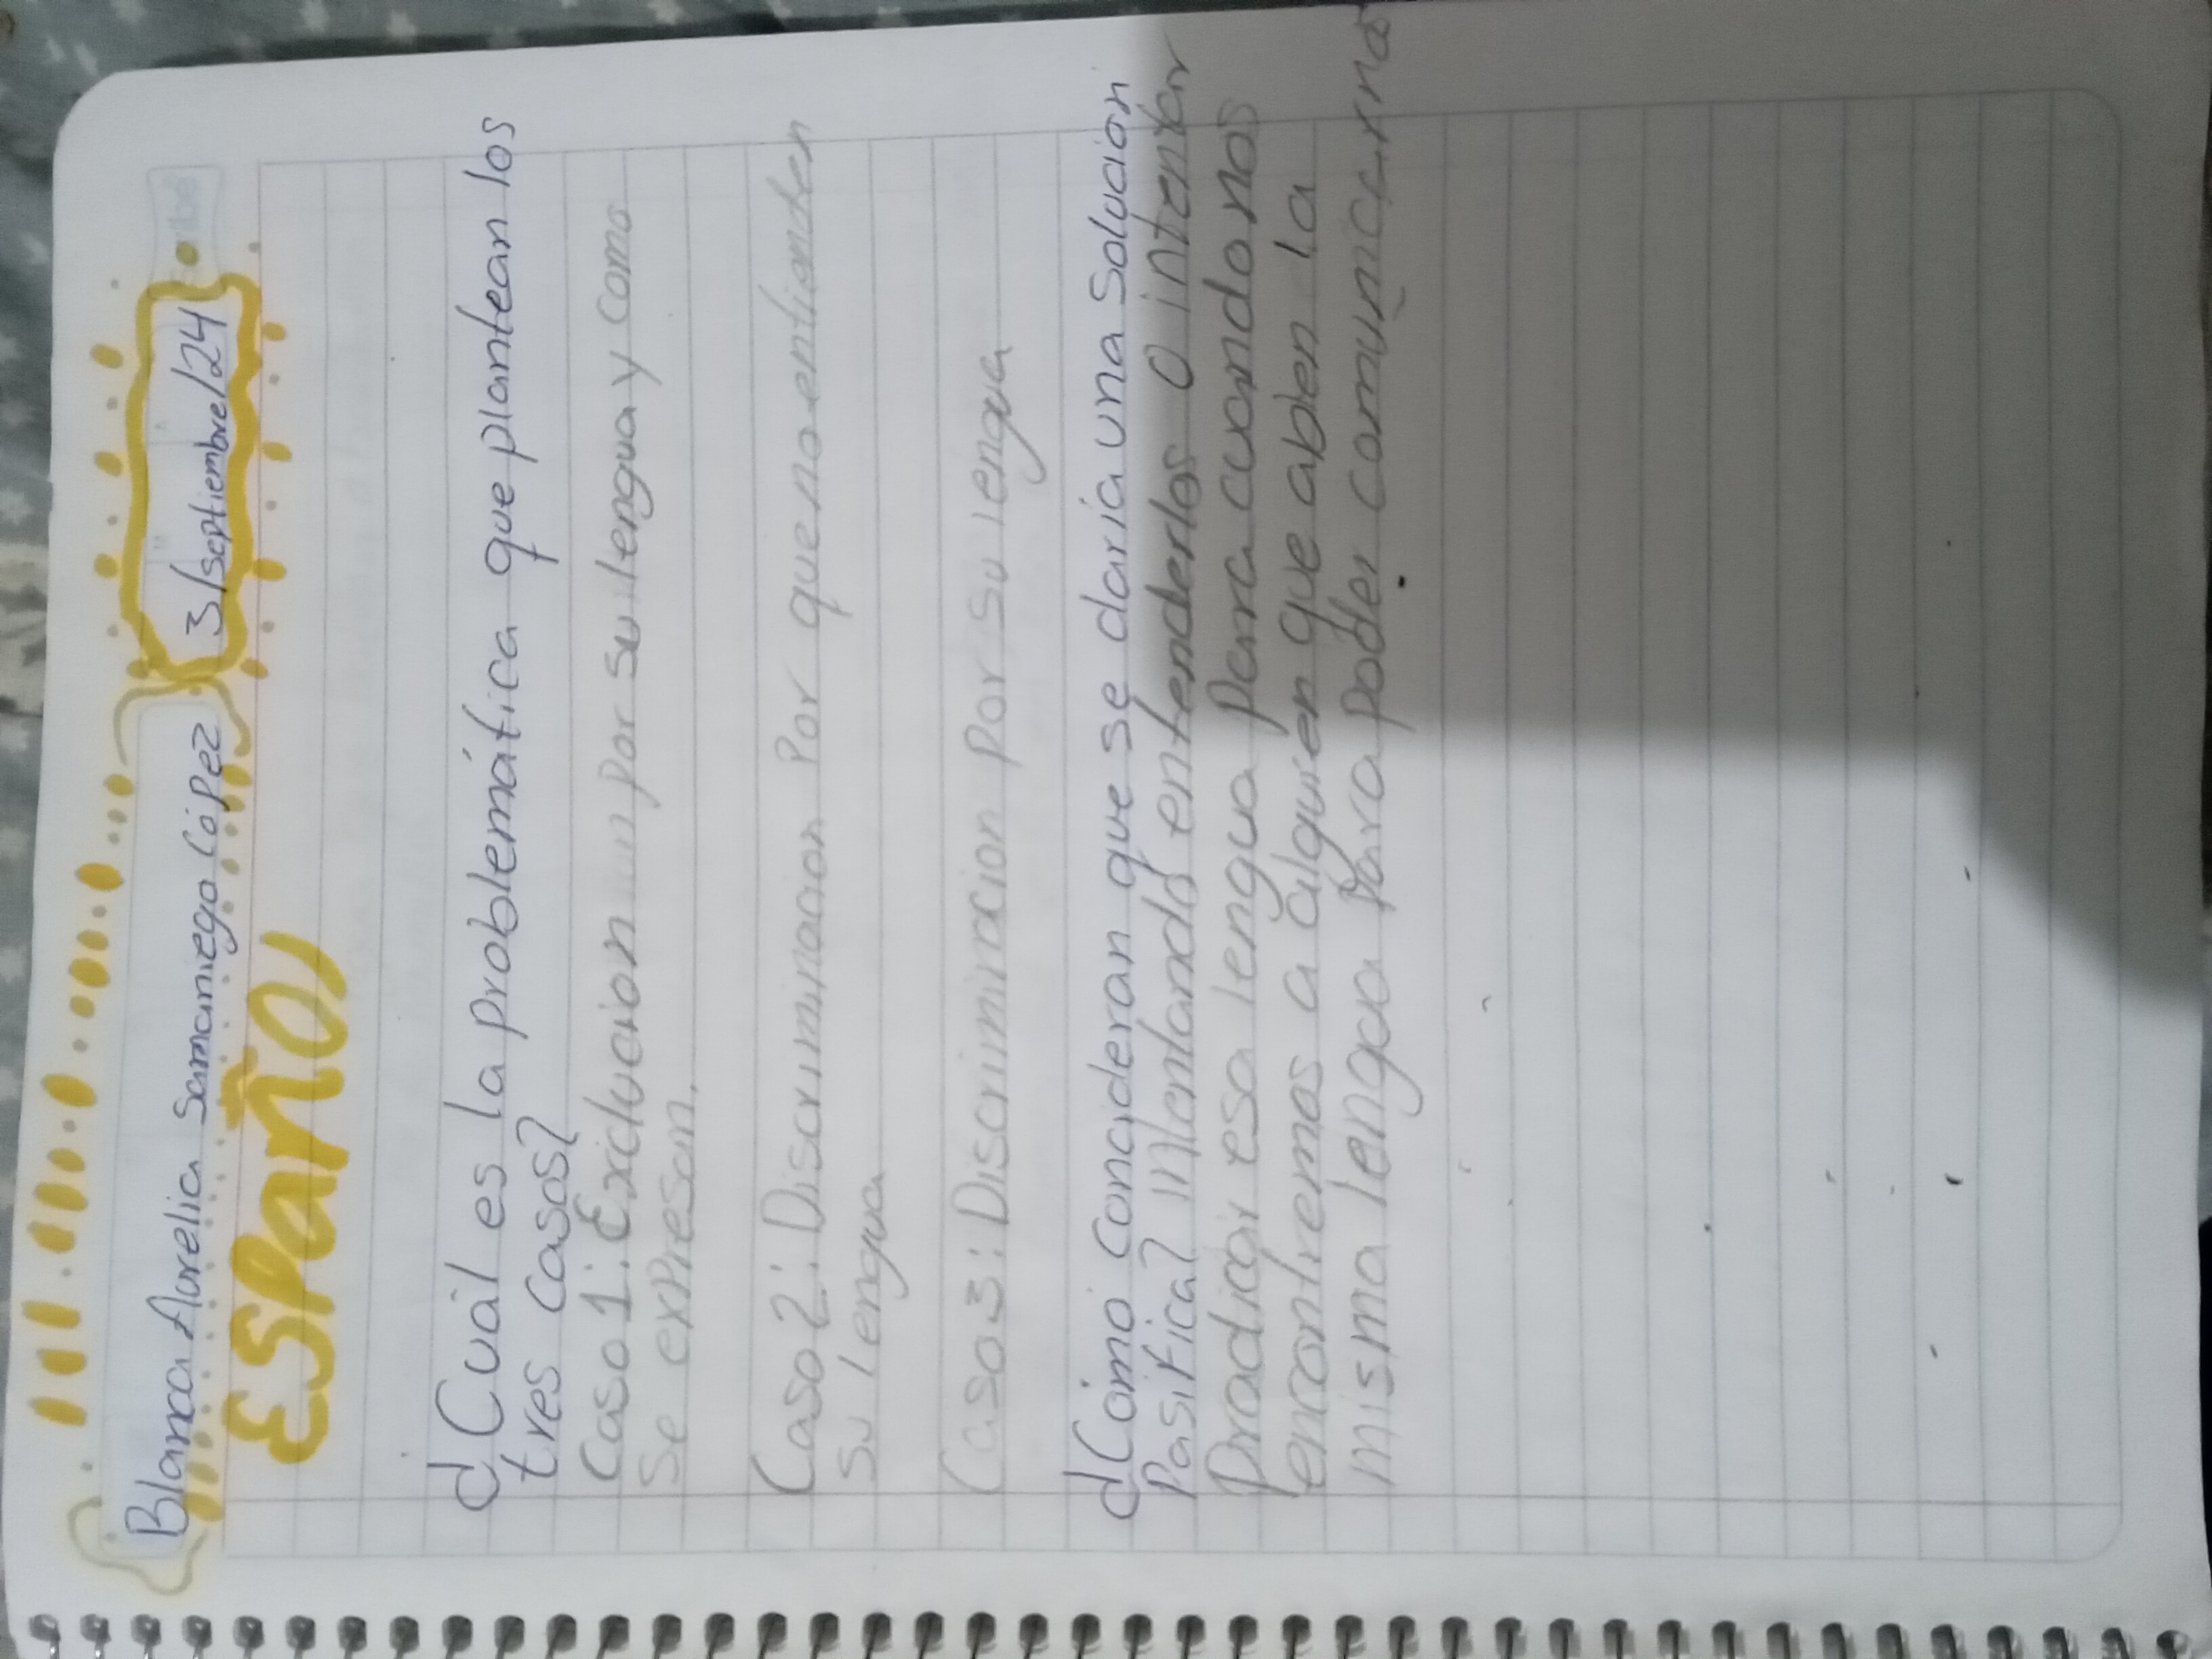 Blanca Aurelia Samaniego López 3/septiembre/24
Español
¿Cuál es la problemática que plantean los
tres casos?
Caso 1: Exiclucion por su lengua y como
se expresan.
Caso 2: Discriminacion Por que no entienden
su lengua
Caso 3: Discriminacion por su lengua
¿Cómo concideran que se daría una solución
Pasifica? intentando entenderlos O intentar
Practicar esa lengua para cuando nos
encontremos a alguien que ablen la
misma lengua Para poder comunicarnos